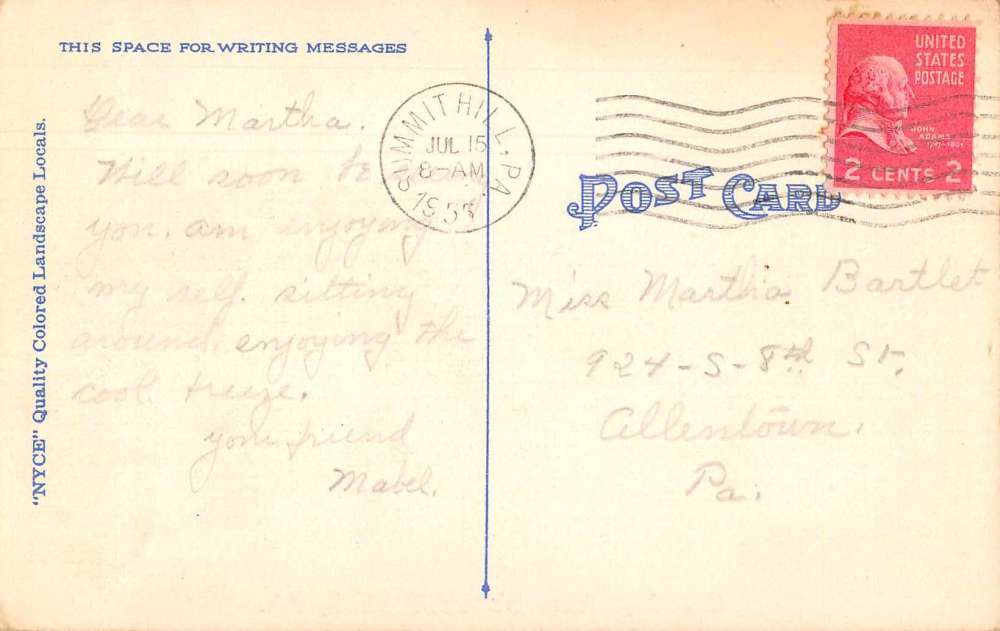 THIS SPACE FOR WRITING MESSAGES
"NYCE" Quality Colored Landscape Locals.
Dear Martha.
Will soon be
you, am enjoying
my self. sitting
around, enjoying the
cool breeze.
your friend
Mabel.
SUMMIT HILL, PA
JUL 15
8-AM
UNITED
STATES
POSTAGE
JOHN
ADAMS
2 CENTS 2
POST CARD
Miss Martha Bartlet
924-S-8th St.
Allentown,
Pa.